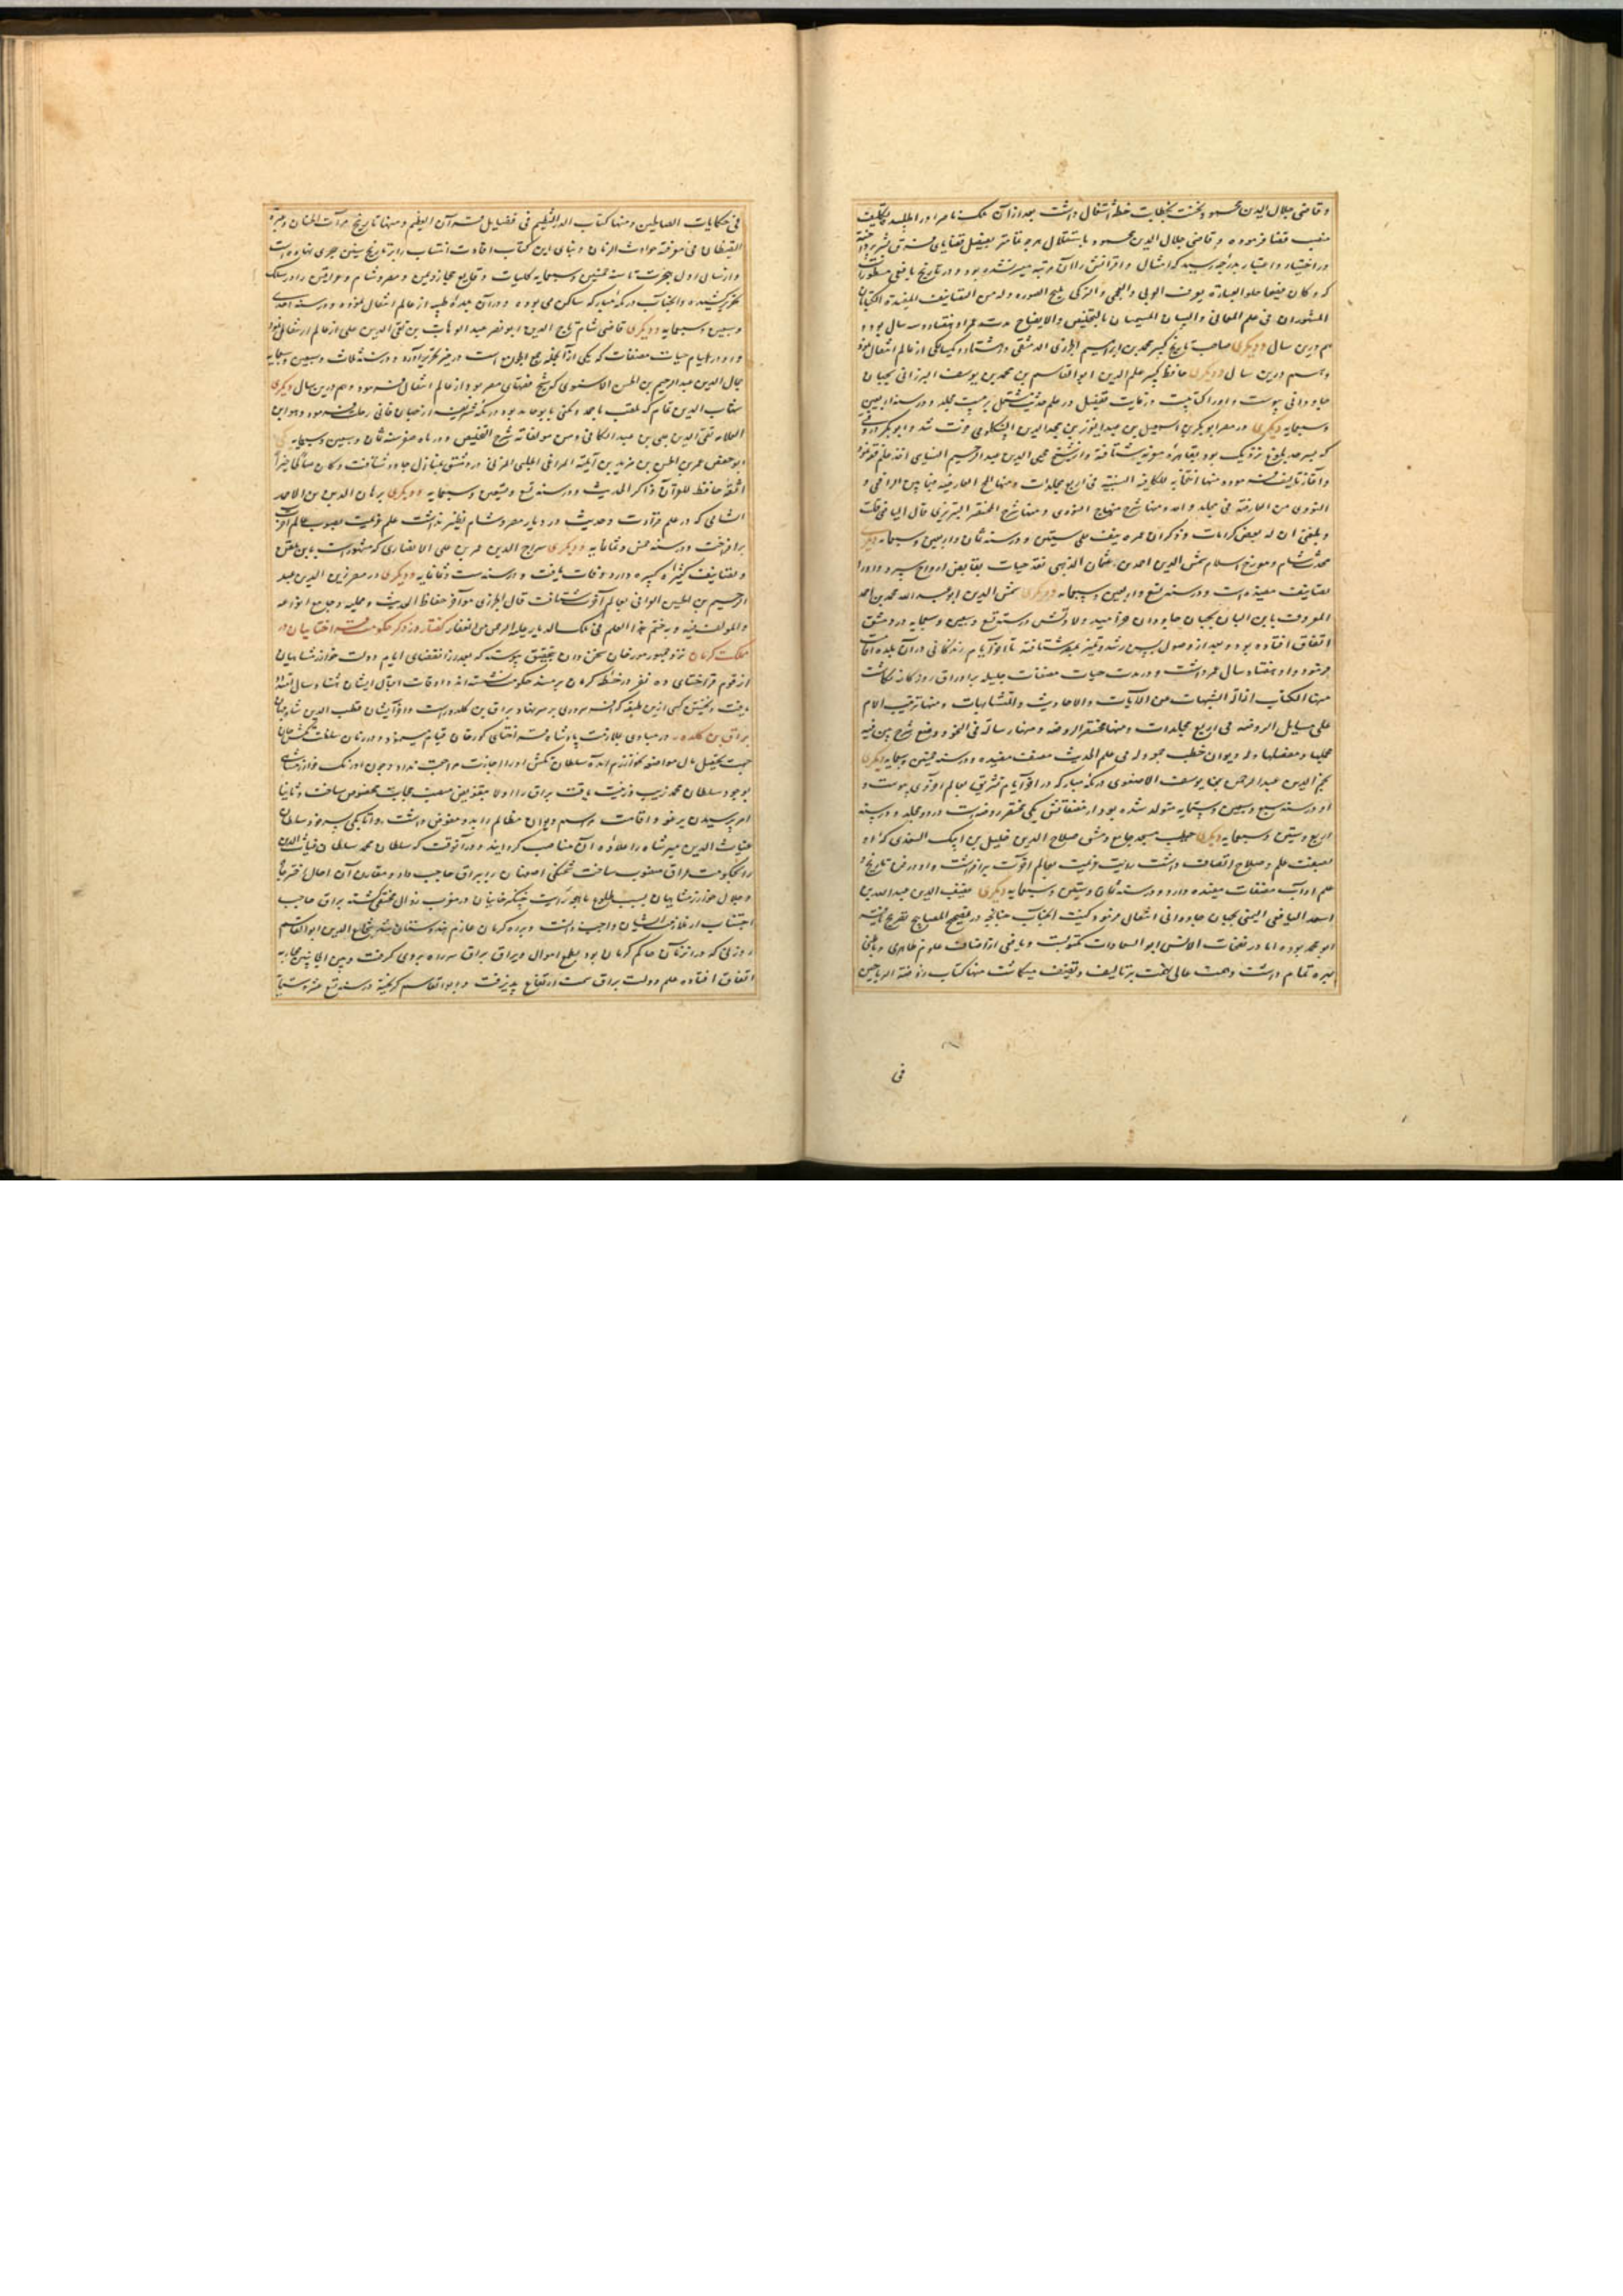 و قاضی جلال الدین محمود نخست بخطابت خطه اشتغال داشت بعد از آن ملک ناصر او را طلبیده بتکلیف
منصب قضا فرموده و قاضی جلال الدین محمود باستقلال هر چه تمامتر بفیصل قضایای فرق بشر پرداخته
در اختیار و اعتبار بدرجه رسید که امثال و اقرانش را آن مرتبه میسر نشده بود و در تاریخ یافعی مسطور است
که و کان فصیحا حلو العبارة یعرف العربی والعجمی والترکی ملیح الصوره وله من التصانیف المفیدة الکتابان
المشهوران فی علم المعانی والبیان المسمیان بالتلخیص والایضاح مدت عمر او هفتاد و سه سال بود و
هم درین سال و دیگری صاحب تاریخ کبیر محمد بن ابراهیم الجزری الدمشقی در هشتاد و یکسالگی از عالم انتقال نمود
و هم درین سال و دیگری حافظ کبیر علم الدین ابو القاسم بن محمد بن یوسف البرزالی بجهان
جاودانی پیوست و او را کتابیست در غایت تفصیل در علم حدیث مشتمل بر بیست مجلد و در سنه اربعین
و سبعمایه دیگری در مصر ابو بکر بن اسمعیل بن عبد العزیز بن مجد الدین السنکلومی فوت شد و ابو بکر در وقتی
که بسر حد بلوغ نزدیک بود بقاهره معزیه شتافته و از شیخ محیی الدین عبد الرحیم النسایی اخذ علم فقه نمود
و آغاز تألیف فرموده منها انتخابه للکافیه السنیه فی اربع مجلدات و منها
النووی من المعارضه فی مجلد واحد و منها شرح منهاج النووی و منها شرح المختصر التبریزی قال الیافعی قلت
و بلغنی ان له بعض کرامات و ذکر ان عمره نیف علی ستین و در سنه ثمان و اربعین و سبعمایه دیگری
محدث شام و مورخ اسلام شمس الدین احمد بن عثمان الذهبی نقد حیات بقابض ارواح سپرد و او را
تصانیف مفیده است و در سنه تسع و اربعین و سبعمایه و دیگری شمس الدین ابو عبد الله محمد بن احمد
المعروف بابن اللبان بجهان جاودان خرامید ولادتش در سنه تسع و سبعین و ستمایه در دمشق
اتفاق افتاده بود و بعد از وصول بسن رشد و تمیز بمصر شتافته تا آخر ایام زندگانی در آن بلده اقامت
فرمود و او هفتاد سال عمر داشت و در مدت حیات مصنفات جلیله بر اوراق روزگار نگاشت
منها الکتاب ازالة الشبهات عن الآیات والاحادیث والمتشابهات و منها ترتیب الام
علی مسایل الروضه فی اربع مجلدات و منها مختصر الروضه و منها رساله فی النحو و وضع شرح بین فیه
مجملها و مفصلها و له دیوان خطب مجود له فی علم الحدیث مصنف مفیده و در سنه خمسین و سبعمایه دیگری
نجم الدین عبد الرحمن بن یوسف الاصفونی در مکه مبارکه در آخر ایام تشریق بعالم اخروی پیوست و
او در سنه سبع و سبعین و ستمایه متولد شده بود از مصنفاتش یکی مختصر روضه است در دو مجلد و در سنه
اربع و ستین و سبعمایه دیگری خطیب مسجد جامع دمشق صلاح الدین خلیل بن ایبک الصفدی که او
بصفت علم و صلاح اتصاف داشت رایت عزیمت بعالم آخرت برافراشت و او در فن تاریخ و
علم ادب مصنفات مفیده دارد و در سنه ثمان و ستین و سبعمایه دیگری عفیف الدین عبد الله بن
اسعد الیافعی الیمنی بجهان جاودانی انتقال فرمود کنیت آنجناب چنانچه در تصحیح المصابیح تصریح یافته
ابو محمد بوده اما در نفحات الانس ابو السعادات مکتوبست و یافعی از اصناف علوم ظاهری و باطنی
بهره تمام داشت و همت عالی نهمت بر تألیف و تصنیف میگماشت منها کتاب روضة الریاحین
فی
فی حکایات الصالحین و منها کتاب الدر النظیم فی فضایل قرآن العظیم و منها تاریخ مرآت الجنان و عبرة
الیقظان فی معرفة حوادث الزمان و بنای این کتاب افادت انتساب را بر تاریخ سنین هجری نهاده است
و از سال اول هجرت تا سنه خمسین و سبعمایه کلیات وقایع حجاز و یمن و مصر و شام و عراقین را در سلک
تحریر کشیده و آنجناب در مکه مبارکه ساکن می بوده و در آن بلده طیبه از عالم انتقال نموده و در سنه احدی
و سبعین و سبعمایه و دیگری قاضی شام تاج الدین ابو نصر عبد الوهاب بن تقی الدین علی از عالم ارتحال نمود
و او در ایام حیات مصنفات که یکی از آنجمله جمع الجوامع است در حیز تحریر آورد و در سنه ثلث و سبعین و سبعمایه
جمال الدین عبد الرحیم بن الحسن الاسنوی که شیخ فقهای مصر بود از عالم انتقال فرمود و هم درین سال دیگری
شهاب الدین تمام که ملقب بامجد و مکنی بابو حامد بود در مکه شریفه از جهان فانی رحلت فرمود و هو ابن
العلامه تقی الدین علی بن عبد الکافی و من مولفاته شرح التلخیص و در ماه صفر سنه ثمان و سبعین و سبعمایه
ابو حفص عمر بن الحسن بن مزید بن امیله المراغی الحلبی المزی در دمشق بمنازل جاوید شتافت و کان صالحا خیرا
ثقة حافظ للقرآن ذاکر الحدیث و در سنه تسع و تسعین و سبعمایه و دیگری برهان الدین بن الاحمد
الشامی که در علم قرائت و حدیث در دیار مصر و شام نظیر نداشت علم عزیمت بصوب عالم آخرت
برافراخت و در سنه خمس و ثمانمایه و دیگری سراج الدین عمر بن علی الانصاری که مشهور است بابن ملقن
و تصانیف کثیره کبیره دارد وفات یافت و در سنه ست و ثمانمایه و دیگری در مصر زین الدین عبد
الرحیم بن الحسین العراقی بعالم آخرت شتافت قال الجزری هو آخر حفاظ الحدیث و ممیلیه و جامع انواعه
والمؤلف فیه و به ختم هذا العلم گفتار در ذکر حکومت قراختاییان در
مملکت کرمان نزد جمهور مورخان سخن دان بتحقیق پیوسته که بعد از انقضای ایام دولت خوارزمشاهیان
از قوم قراختای ده نفر در خطه کرمان بر مسند حکومت نشسته اند و اوقات اقبال ایشان هشتاد سال امتداد
یافت و نخستین کسی ازین طبقه که افسر سروری بر سر نهاد براق بن کلدور است و آخر ایشان قطب الدین شاه جهان
براق بن کلدوز در مبادی حال بملازمت پادشاه قراختای گورخان قیام مینمود و در زمان سلطنت تکش خان
جهت تحصیل مال مواضعه بخوارزم آمده سلطان تکش او را اجازت مراجعت نداد و چون اورنگ خوارزمشاهی
بوجود سلطان محمد زیب و زینت یافت براق را اولا بتفویض منصب حجابت مخصوص ساخت و ثانیا
امر پرسیدن یرغو و اقامت مراسم دیوان مظالم را بدو مفوض داشت و اتابکی پسر خود سلطان
غیاث الدین میر شاه را علاوه آن مناصب گردانید و در آنوقت که سلطان محمد سلطان غیاث الدین
را بحکومت عراق منصوب ساخت شحنگی اصفهان را ببراق حاجب داد و مقارن آن احوال اختر جاه
و جلال خوارزمشاهیان بسبب طلوع ماهچه رایت چنگیزخانیان در مغرب زوال مختفی گشته براق حاجب
اجتناب از ملازمت ایشان واجب دانست و براه کرمان عازم هندوستان شد شجاع الدین ابو القاسم
زوزنی که در آن زمان حاکم کرمان بود بطمع اموال و یراق براق سر راه بر وی گرفت و بین الجانبین محاربه
اتفاق افتاده علم دولت براق سمت ارتفاع پذیرفت و ابو القاسم گریخته در سنه تسع عشر و ستمایة